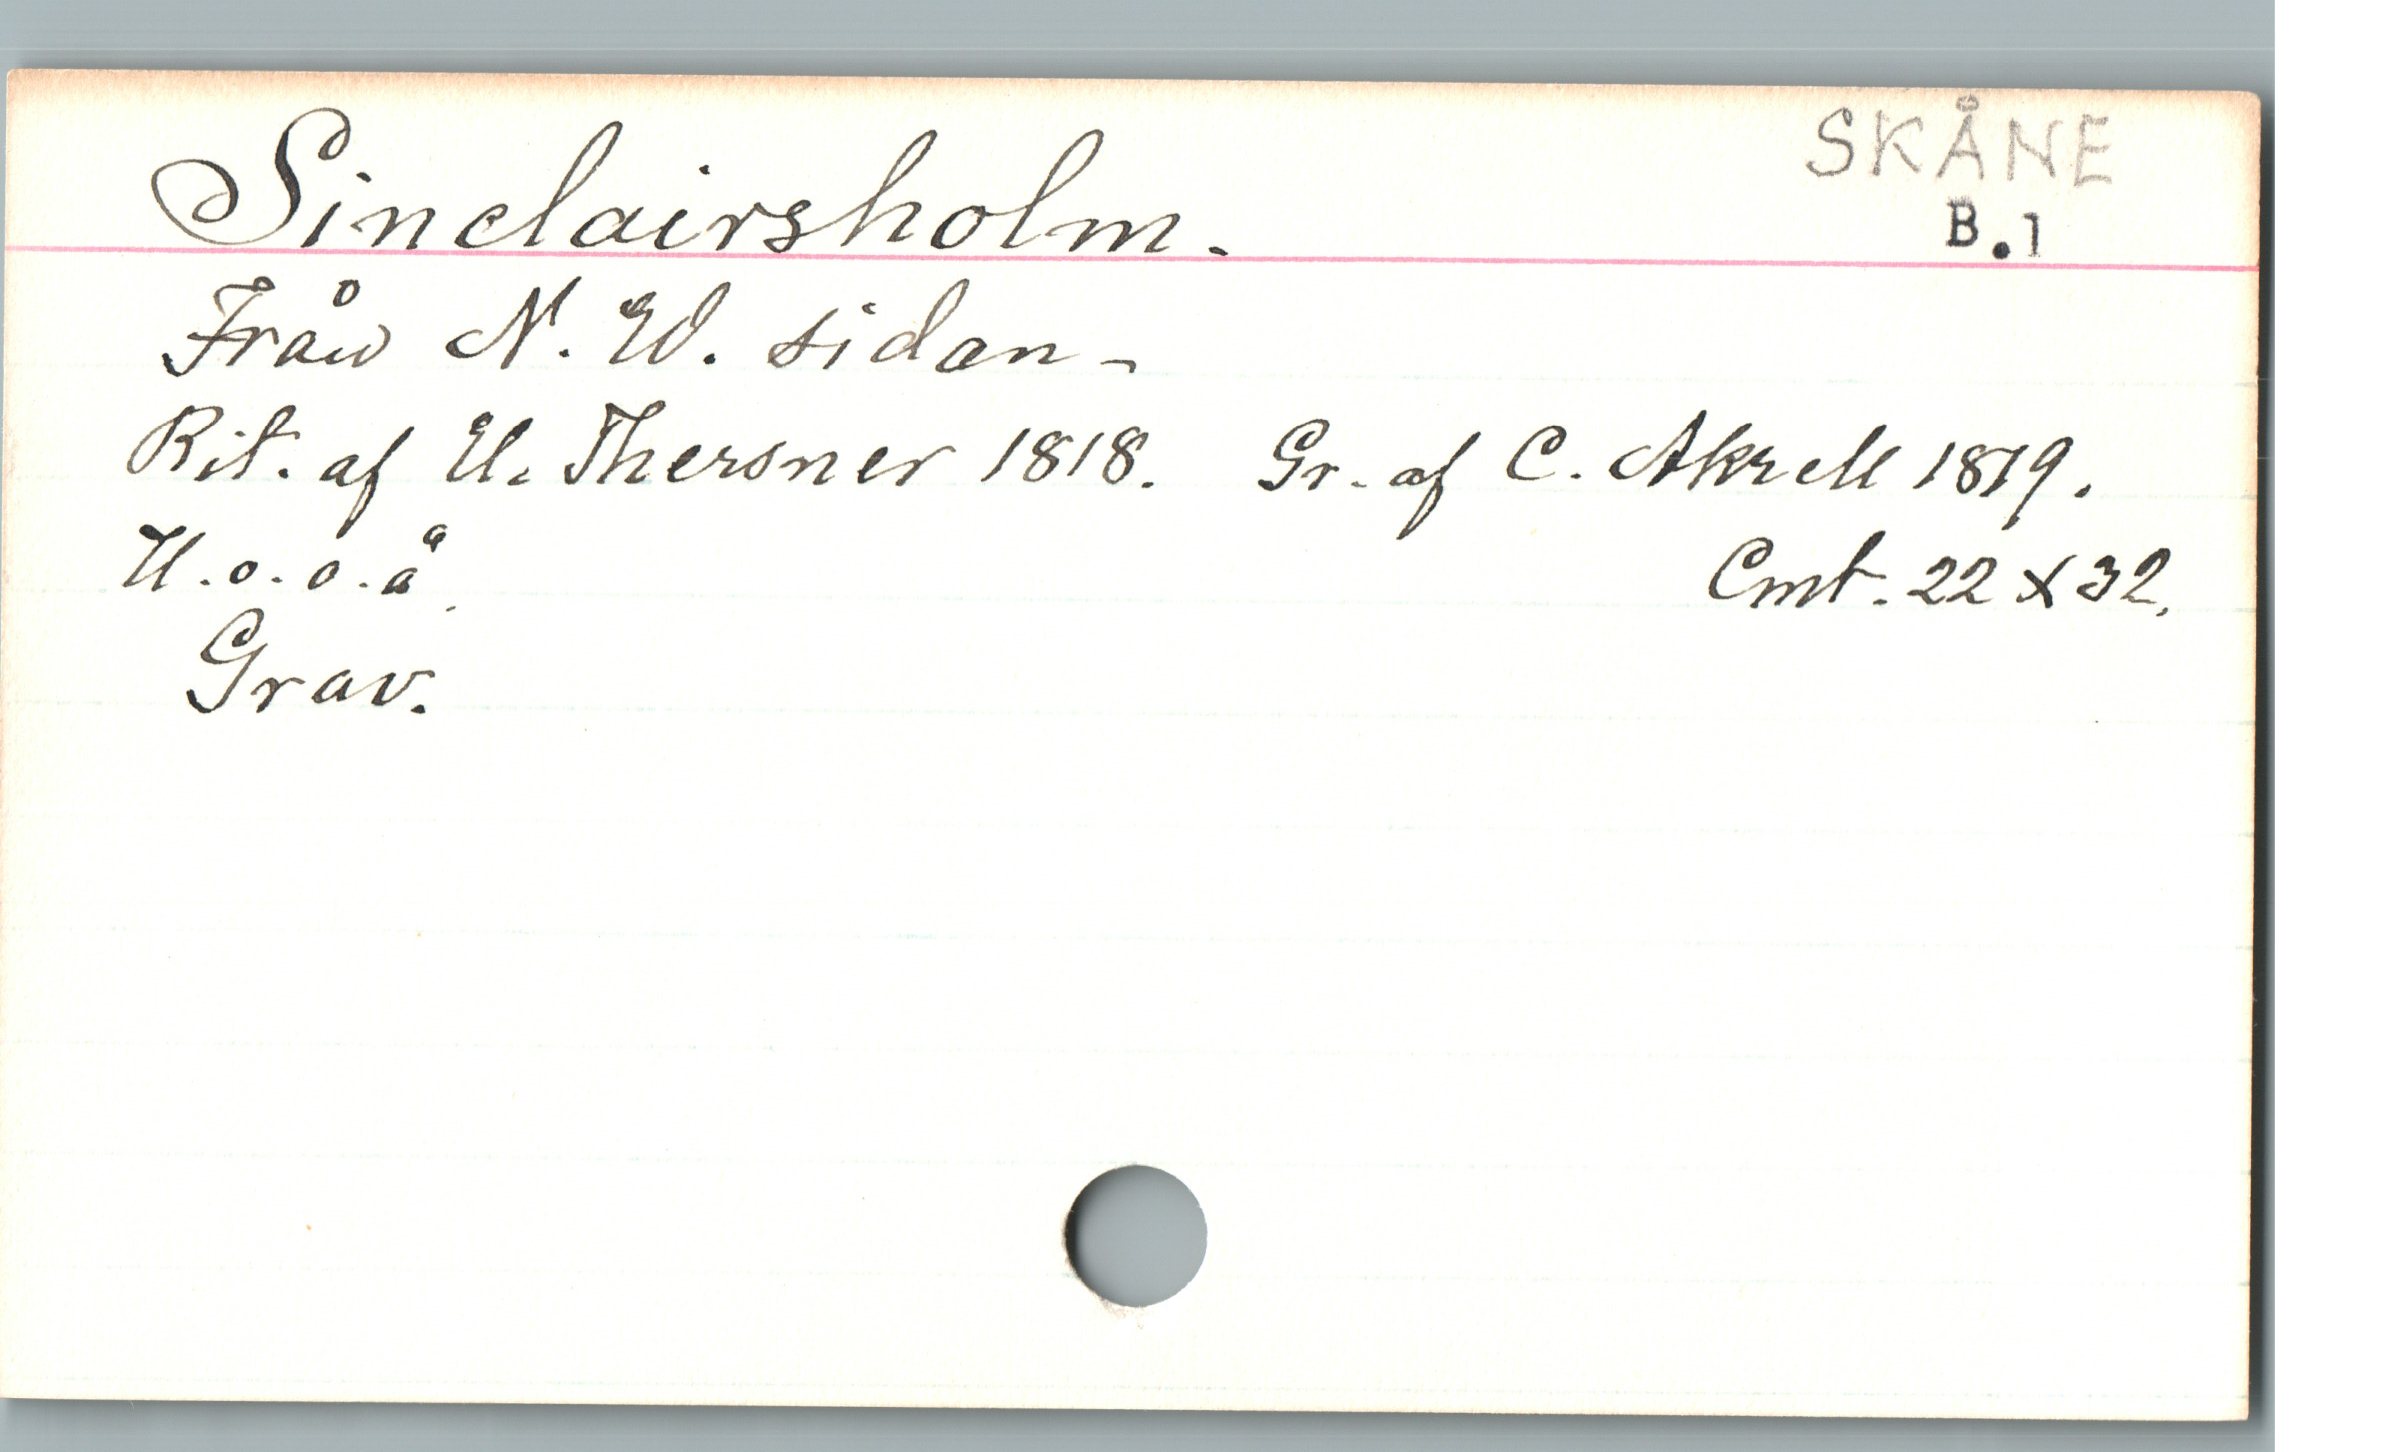 SKÅNE
Sinclairsholm.
B.1
Från N. W. sidan -
Rit. af U. Thersner 1818. Gr. af C. Akrell 1819.
U. o. o. å. Cmt. 22 x 32.
Grav.